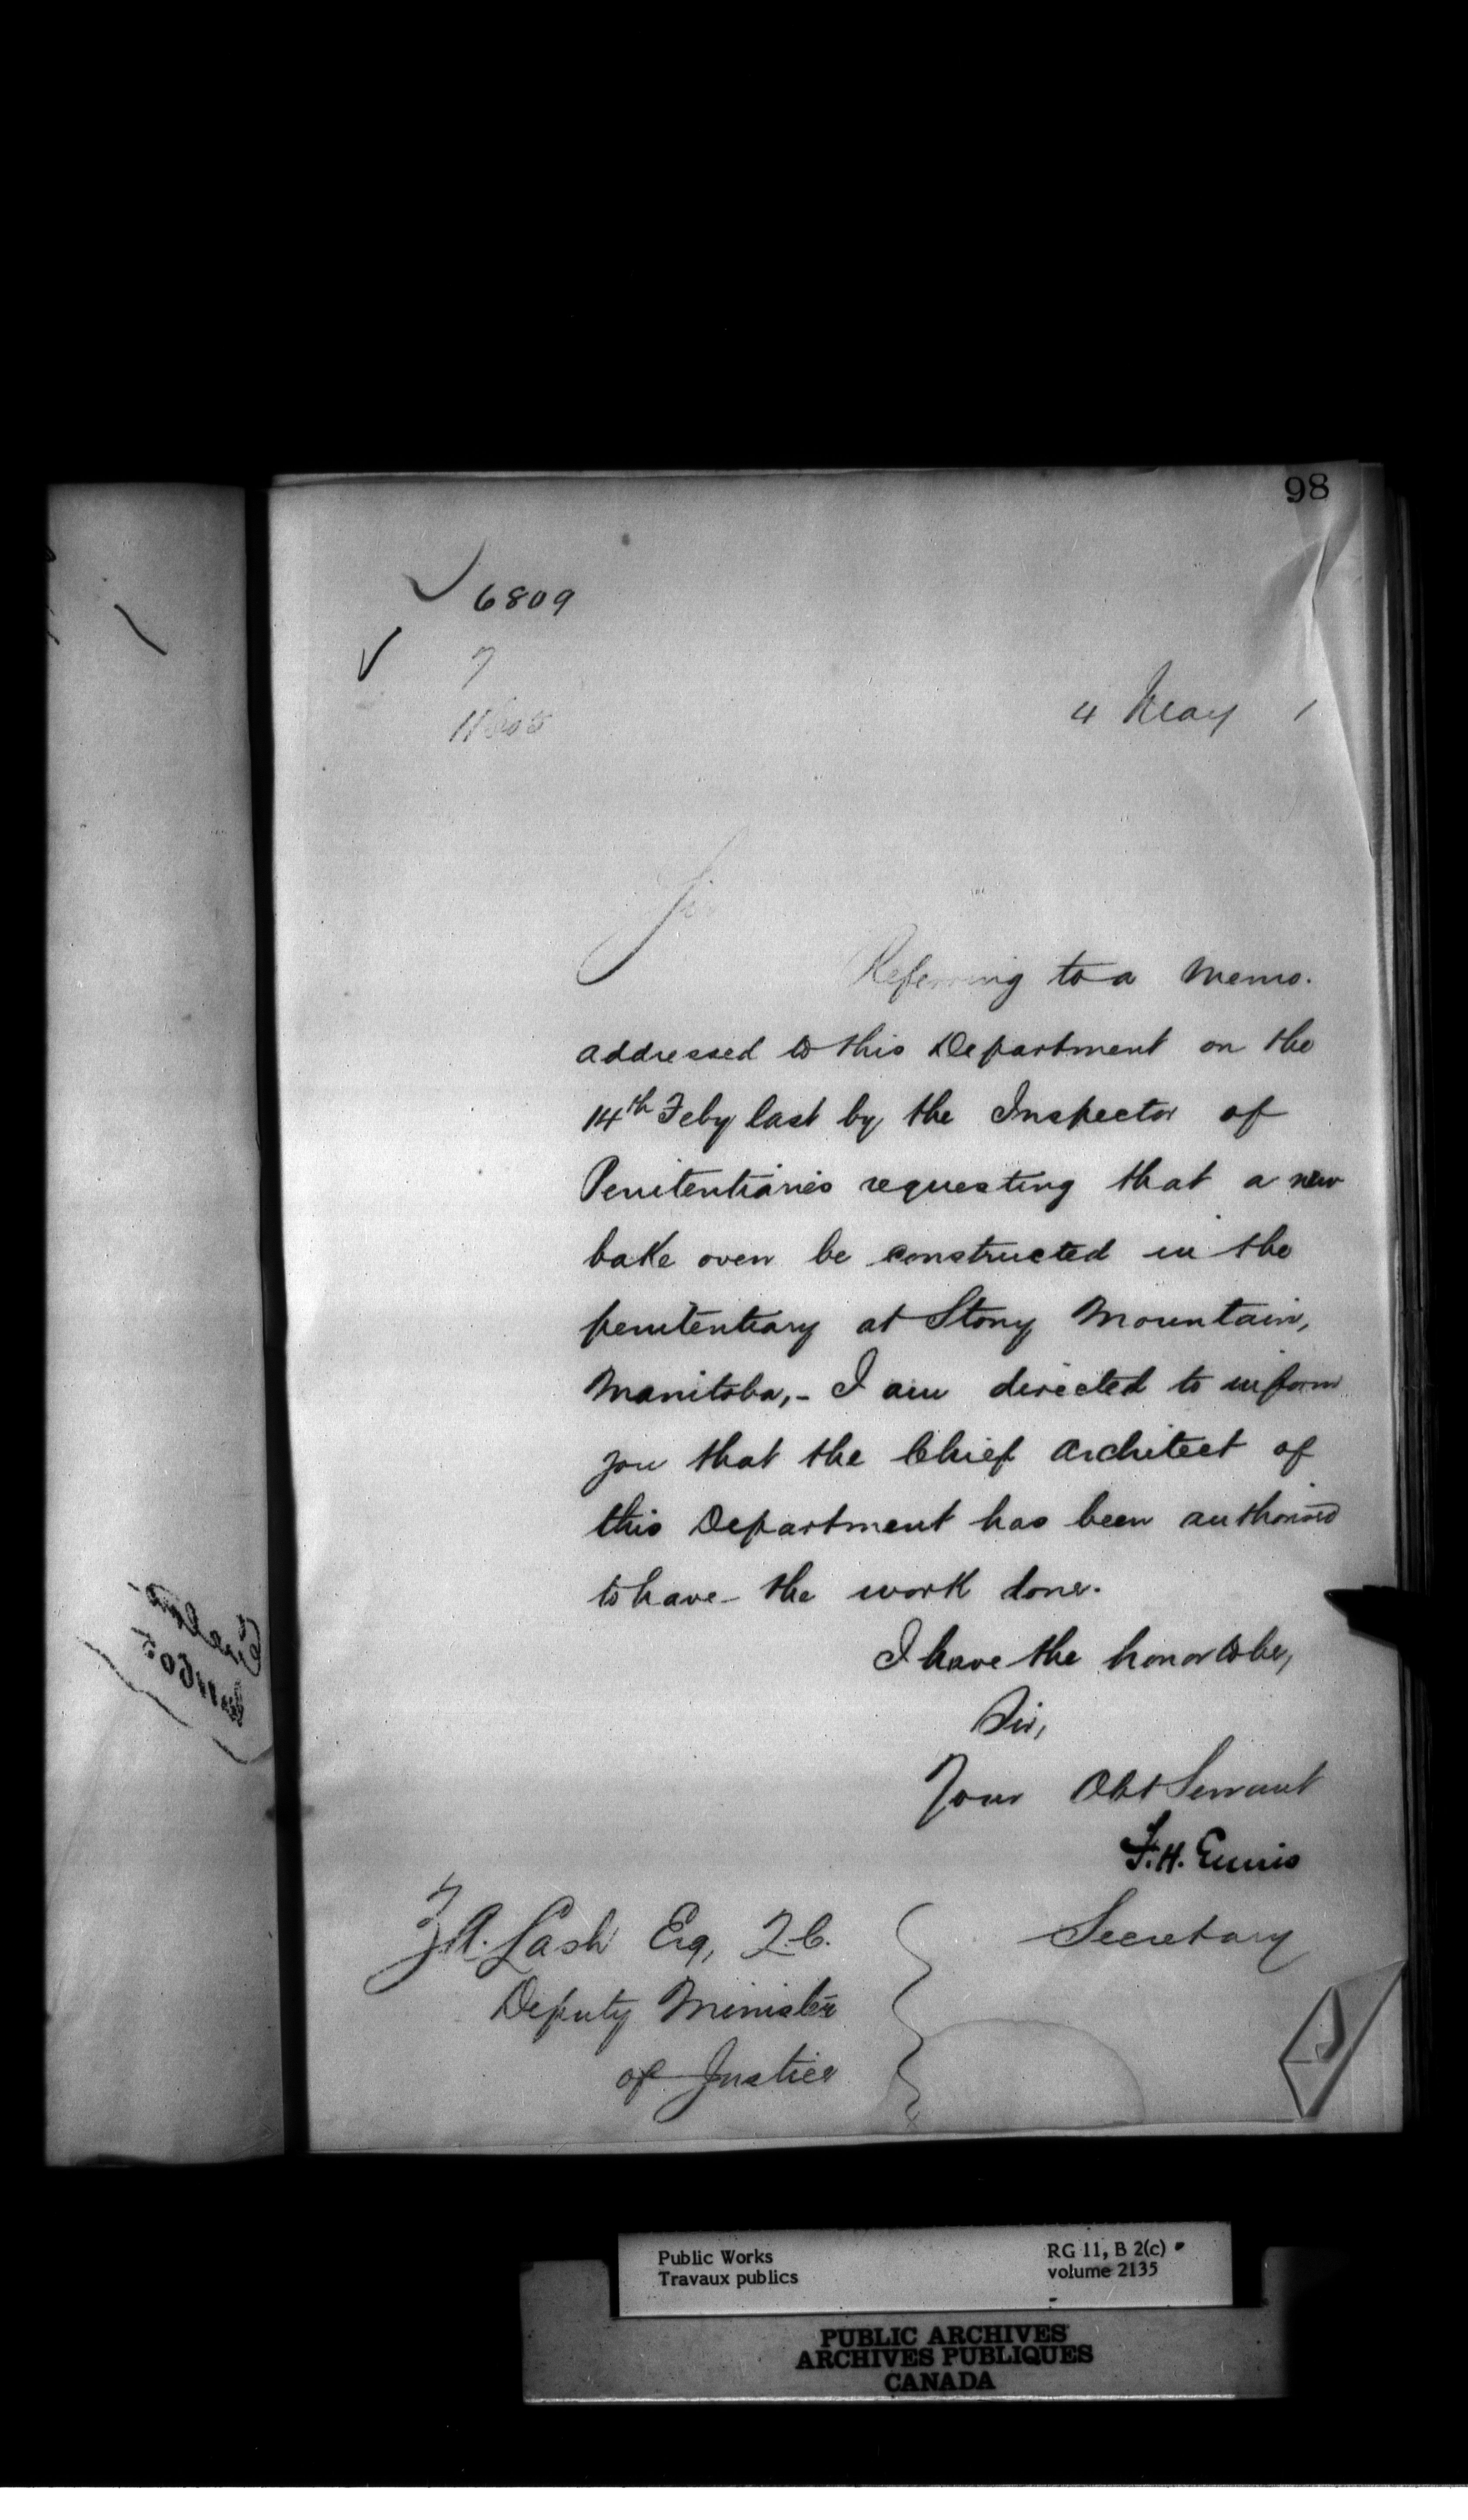 98
6809
7
11605
4 May 1
Sir
Referring to a Memo.
addressed to this Department on the
14th Feby last by the Inspector of
Penitentiaries requesting that a new
bake oven be constructed in the
penitentiary at Stony Mountain,
Manitoba,- I am directed to inform
you that the Chief Architect of
this Department has been authorised
to have the work done.
I have the honor to be,
Sir,
Your Obt Servant
F.H. Ennis
Secretary
Z.A. Lash Esq, Q.C.
Deputy Minister
of Justice
Public Works
Travaux publics
RG 11, B 2(c)
volume 2135
PUBLIC ARCHIVES
ARCHIVES PUBLIQUES
CANADA